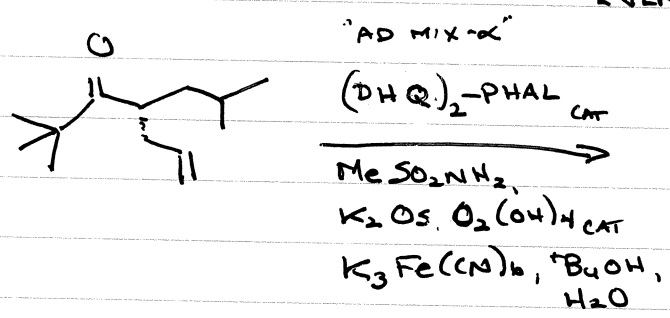 "AD MIX-α"
O
(DHQ)₂-PHAL CAT
MeSO₂NH₂,
K₂OsO₂(OH)₄ CAT
K₃Fe(CN)₆, ᵗBuOH,
H₂O